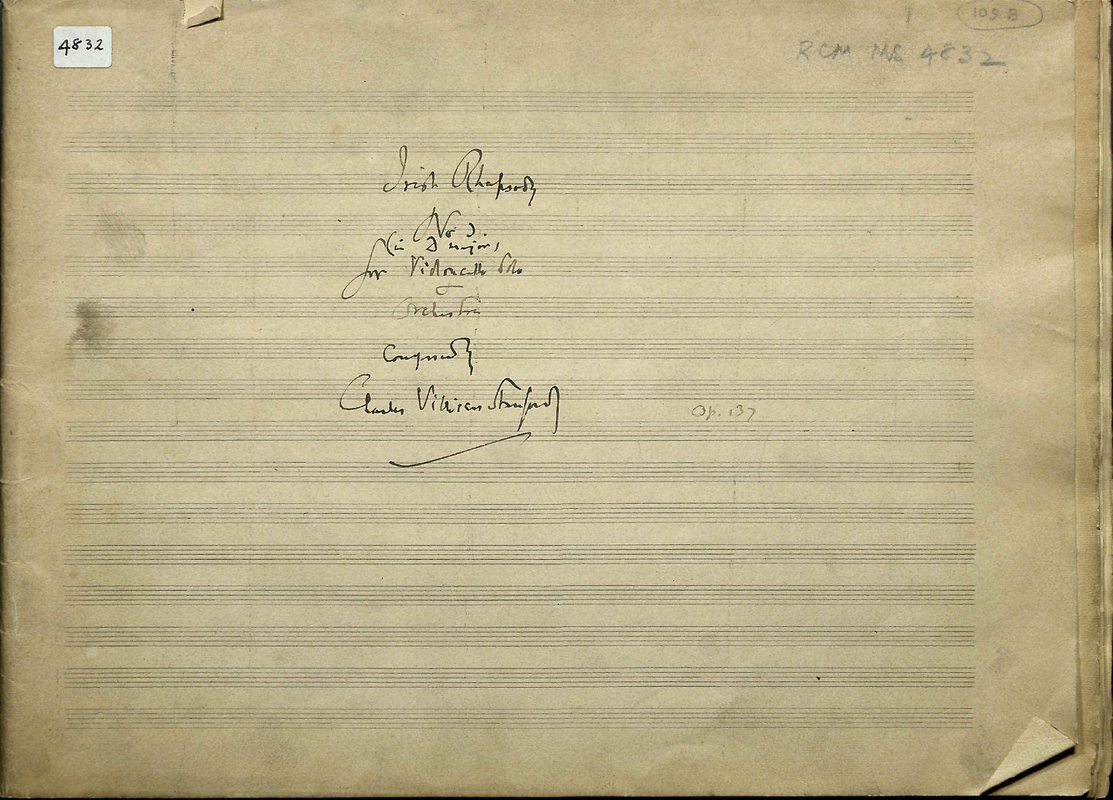 4832
109 B
RCM MS 4832
Irish Rhapsody
No 3
(in D major)
for Violoncello Solo
Orchestra
Composed by
Charles Villiers Stanford
Op. 137